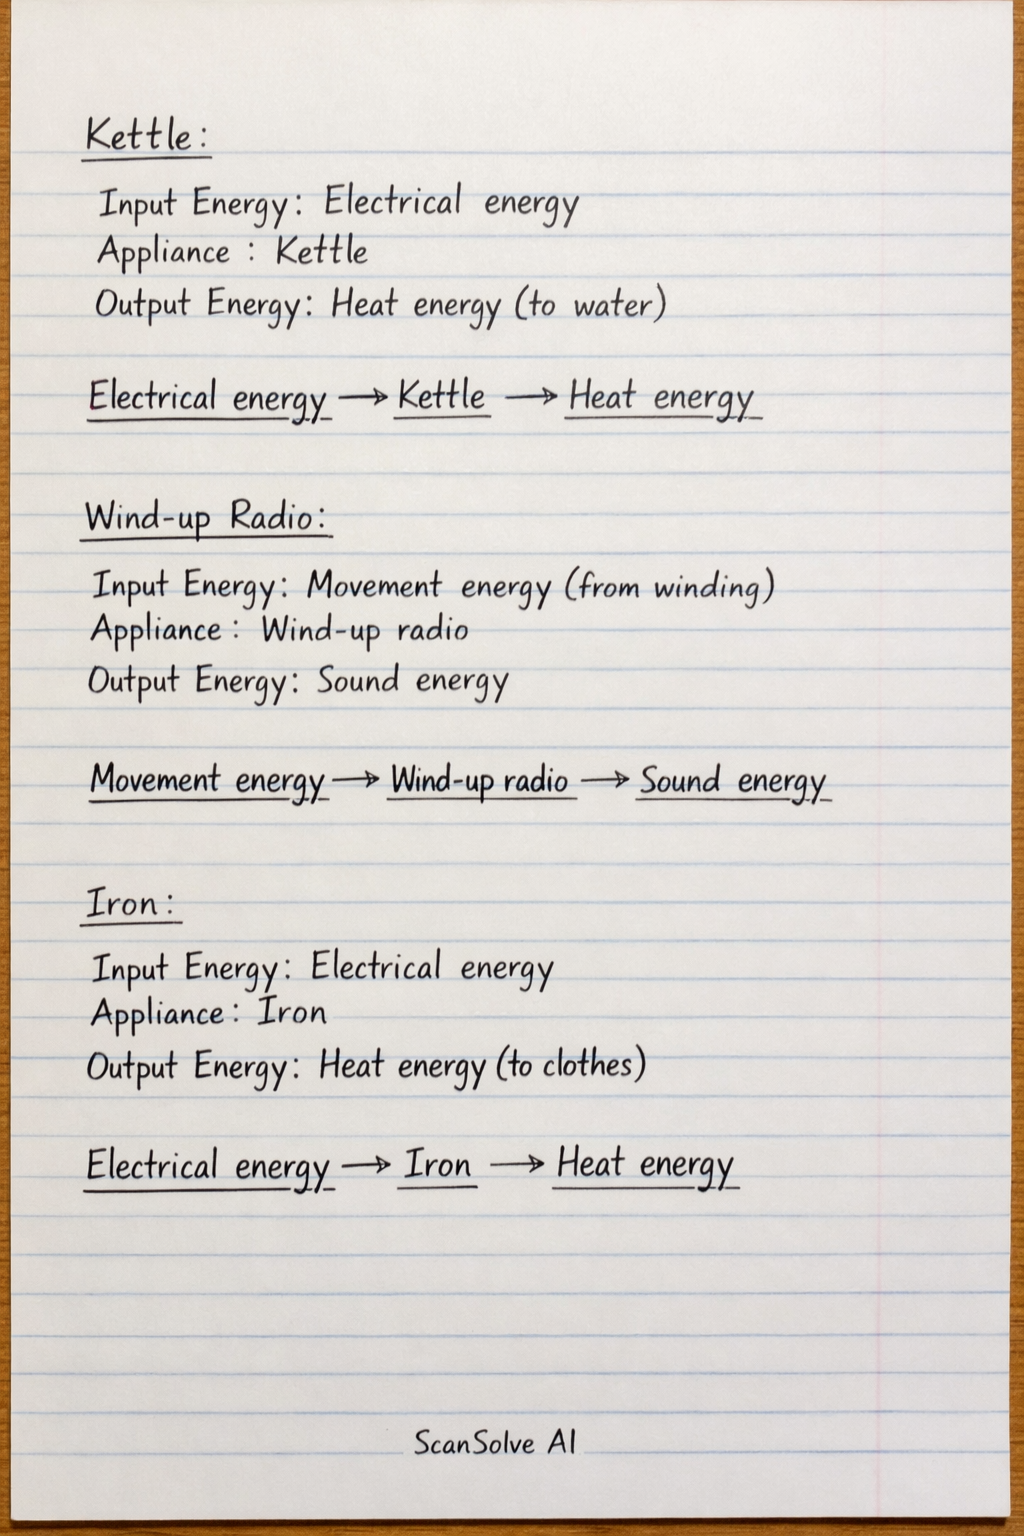 Kettle:
Input Energy: Electrical energy
Appliance : Kettle
Output Energy: Heat energy (to water)
Electrical energy → Kettle → Heat energy
Wind-up Radio:
Input Energy: Movement energy (from winding)
Appliance: Wind-up radio
Output Energy: Sound energy
Movement energy → Wind-up radio → Sound energy
Iron:
Input Energy: Electrical energy
Appliance: Iron
Output Energy: Heat energy (to clothes)
Electrical energy → Iron → Heat energy
ScanSolve AI